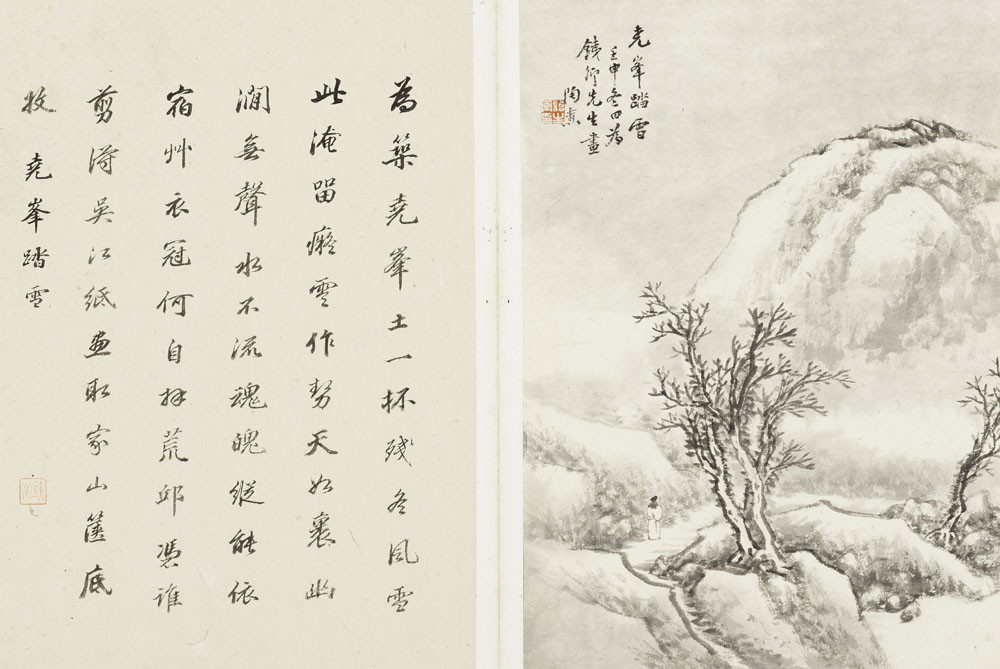 堯峯踏雪
壬申冬日為
先生畫
陶燾
為築堯峯土一抔殘冬風雪
此淹留癡雲作勢天如裹幽
澗無聲水不流魂魄縱能依
宿艸衣冠何自拜荒邱憑誰
剪淂吳江紙畫取家山篋底
收 堯峯踏雪